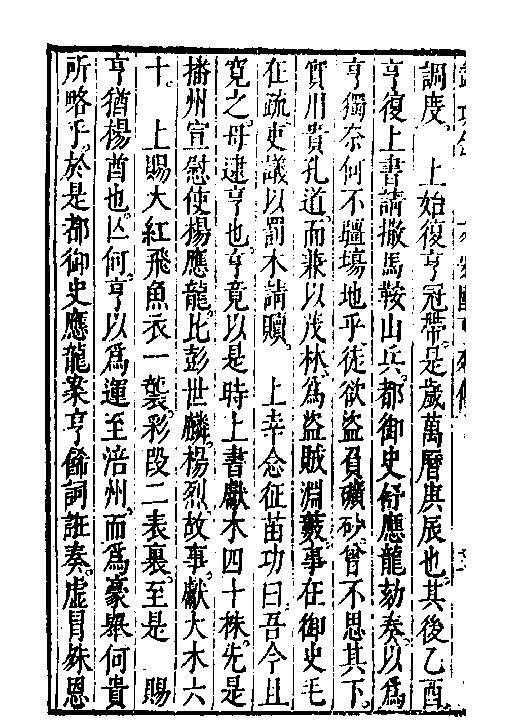 調度。　上始復亨冠帶。是歲萬曆庚辰也。其後乙酉。
亨復上書請撤馬鞍山兵。都御史舒應龍劾奏。以爲
亨獨奈何不疆埸地乎。徒欲盜負礦砂。曾不思其下。
實川貴孔道。而兼以茂林。爲盜賊淵藪。事在御史毛
在疏。吏議以罰木請贖。　上幸念征苗功曰。吾今且
寬之。毋逮亨也。亨竟以是時上書獻木四十株。先是
播州宣慰使楊應龍。比彭世麟。楊烈故事。獻大木六
十。　上賜大紅飛魚衣一襲。彩段二表裏。至是　賜
亨猶楊酋也。亾何。亨以爲運至涪州。而爲豪舉。何貴
所略乎。於是都御史應龍案亨餙詞誑奏。虛冒殊恩